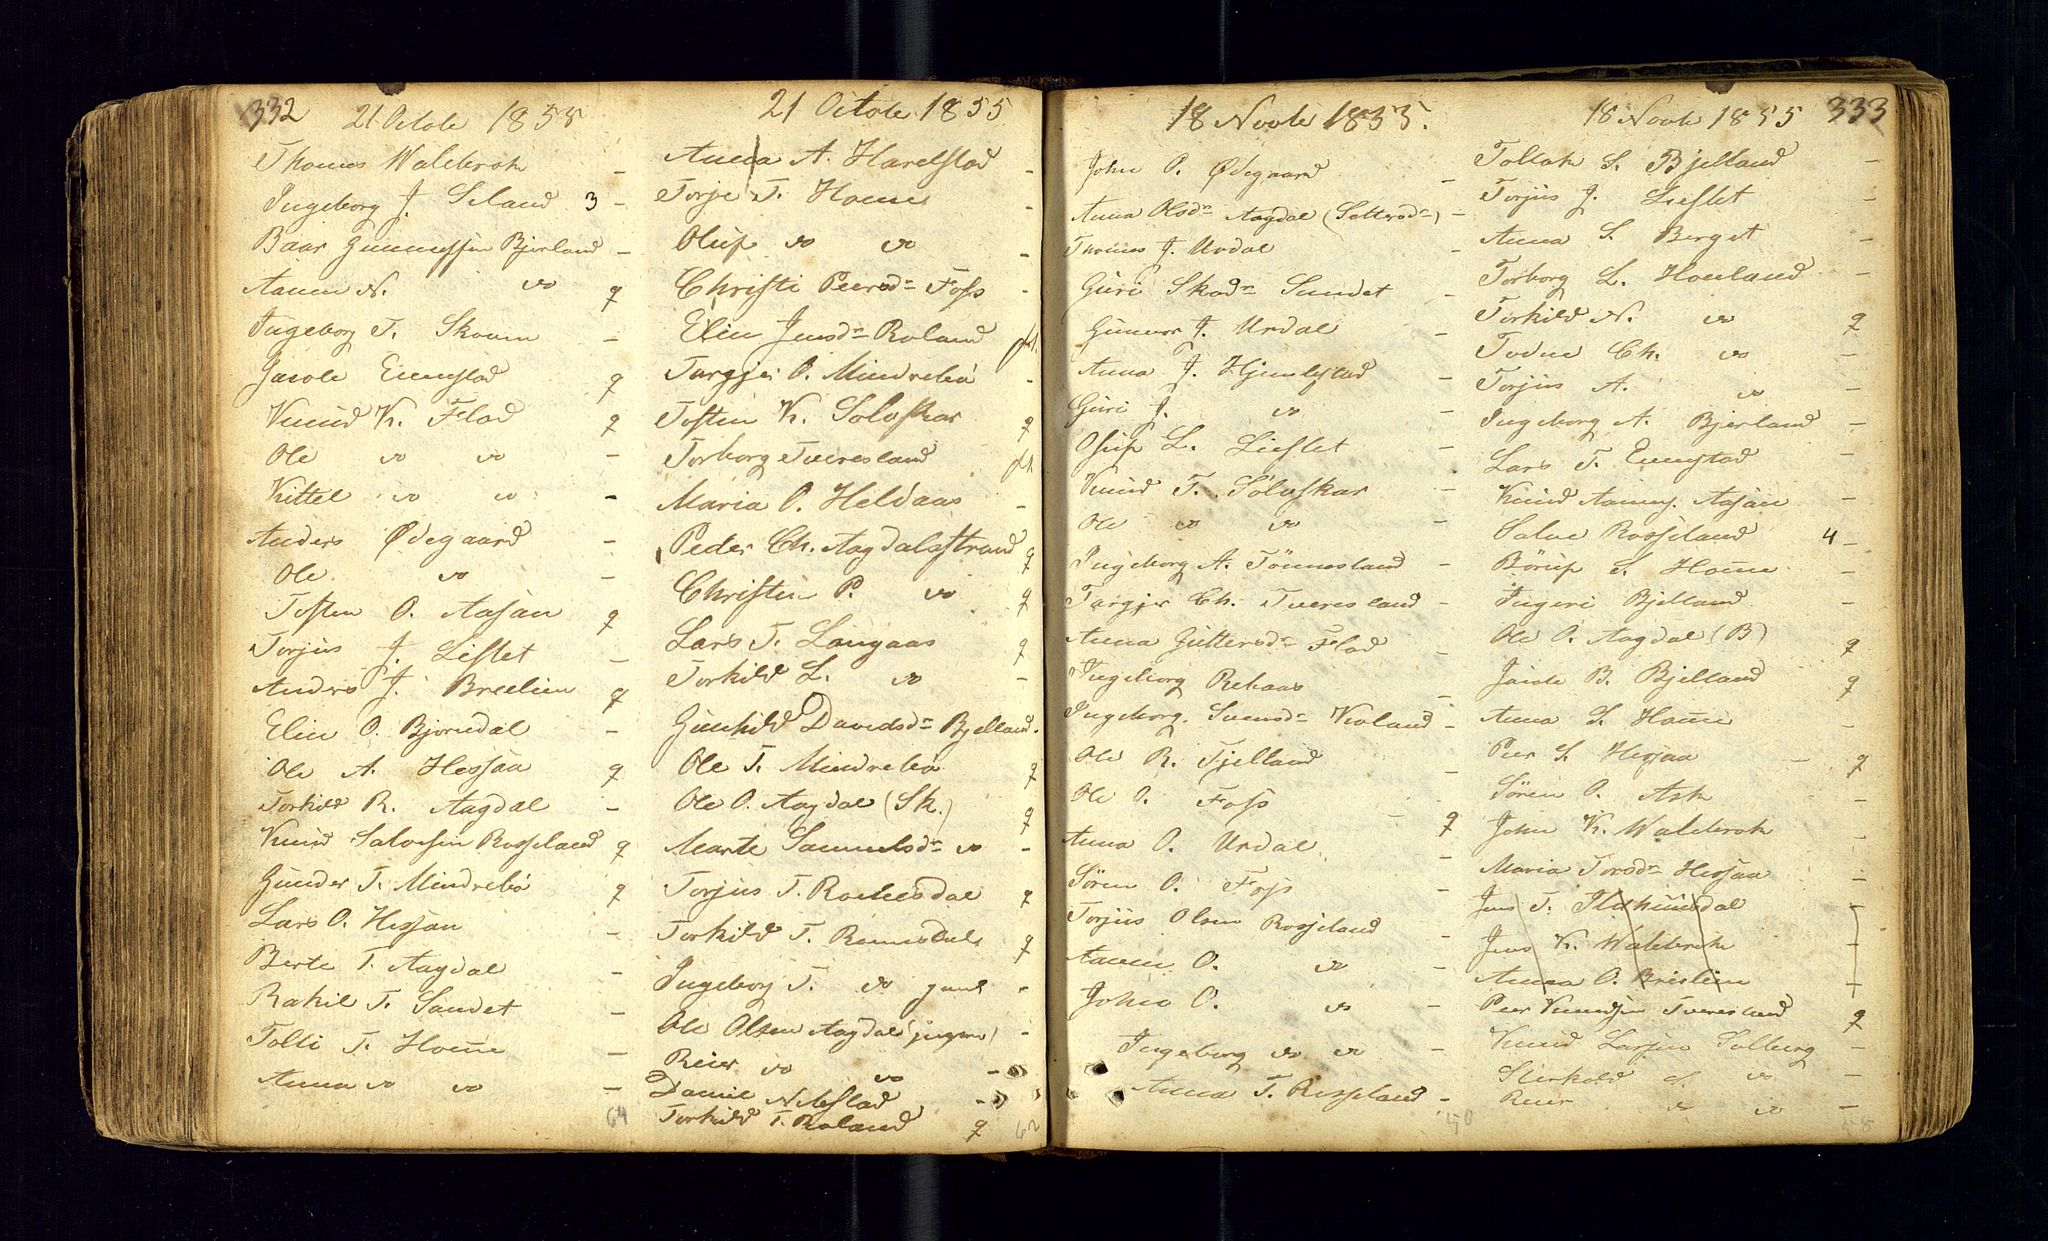 332
21 Octobe 1855
Thomas Walebrok -
Ingeborg J. Seland 3 -
Baar Gunnufsen Bjerland -
Aanen N. do q
Ingeborg T. Skouen -
Jacob Eienstad q
Knud K. Flad q
Ole do do -
Kittel do do -
Anders Ødegaard -
Ole do -
Tosten O. Aasan q
Torjus J. Lislet -
Anders J. Breelien q
Elin O. Bjorndal -
Ole A. Hessaa q
Torkild R. Aagdal -
Knud Salvesen Rosseland q
Gunder T. Mindrebø q
Lars O. Hessaa -
Berte T. Aagdal -
Rakil T. Sandet -
Tolli T. Home -
Anna do do -
64
21 Octobe 1855
Anna A. Harelstad -
Torje T. Home -
Olup do do -
Christi Peersdr Foss -
Elin Jensdr Roland
Targjer O. Mindrebø -
Tosten K. Soloskar q
Torborg Tveresland
Maria O. Heldaas -
Peder Ch. Aagdalsstrand q
Christen P. do q
Lars T. Langaas q
Torkild L. do -
Gunhild Davidsdr Bjelland -
Ole T. Mindrebø q
Ole O. Aagdal (Sk.) q
Marte Samuelsdr do -
Torjus T. Romesdal q
Torkild T. Romesdal q
Ingeborg T. do -
Ole Olsen Aagdal -
Reier do do -
Daniel N. -
Torkild T. Roland q
62
18 Novbr 1855.
John O. Ødegaard -
Anna Olsdr Aagdal -
Thomas J. Urdal -
Guri Sundet -
Gunnar J. Urdal -
Anna J. Hjemlestad -
Guri J. do -
Osup L. Lislet -
Knud T. Soloskar -
Ole do do -
Ingeborg A. Tønnesland -
Targjer Ch. Tveresland -
Anna Guttorsdr Flad -
Ingeborg Rehaas -
Ingeborg Svensdr Voland -
Ole R. Fjelland -
Ole O. Foss - q
Anna O. Urdal -
Søren O. Foss -
Torjus Olsen Rosseland -
Aanen O. do -
John O. do -
Ingeborg do do -
Anna T. Rosseland -
50
18 Novbr 1855 333
Tollak S. Bjelland -
Torjus J. Lislet -
Anna S. Berget -
Torborg L. Houland -
Torkild N. do q
Todne Ch. do -
Torjus A. do -
Ingeborg A. Bjerland -
Lars T. Eienstad -
Knud Aanens. Aasan -
Salve Rosseland 4 -
Børup S. Home -
Ingeri Bjelland -
Ole O. Aagdal (B) q
Jacob B. Bjelland q
Anna S. Home -
Peer S. Hessaa - q
Søren O. Ask -
John K. Walebrok -
Maria Torsdr Hessaa -
Jens T. -
Jens K. Walebrok -
Anna O. Breelien -
Peer Knudsen Tveresland q
Knud Larsen Solberg -
do -
Reier do do -